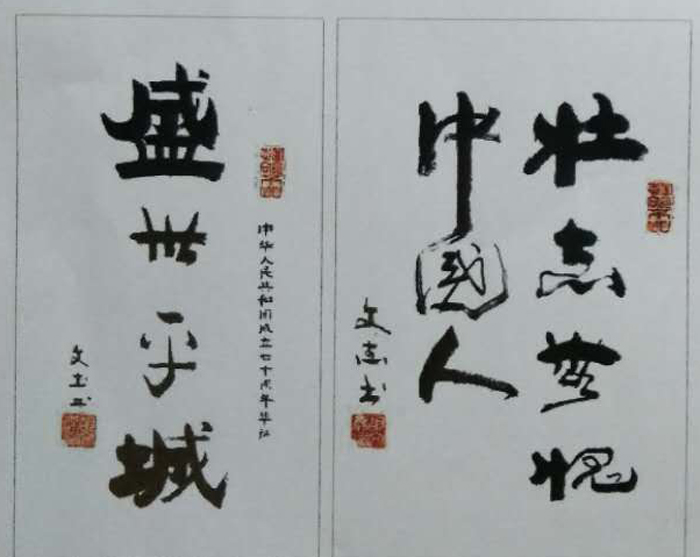 壮志無愧
中國人
文志书
中华人民共和国成立七十周年华诞
盛世平城
文志书